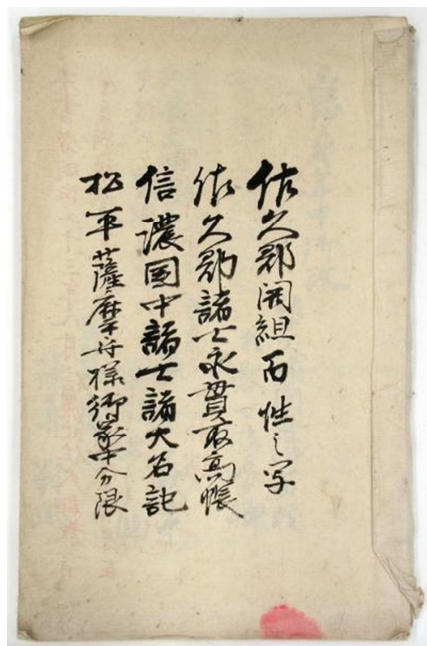 佐久郡開組百姓之写
佐久郡諸士永貫取高帳
信濃国中諸士諸大名記
松平薩摩守様御家中分限